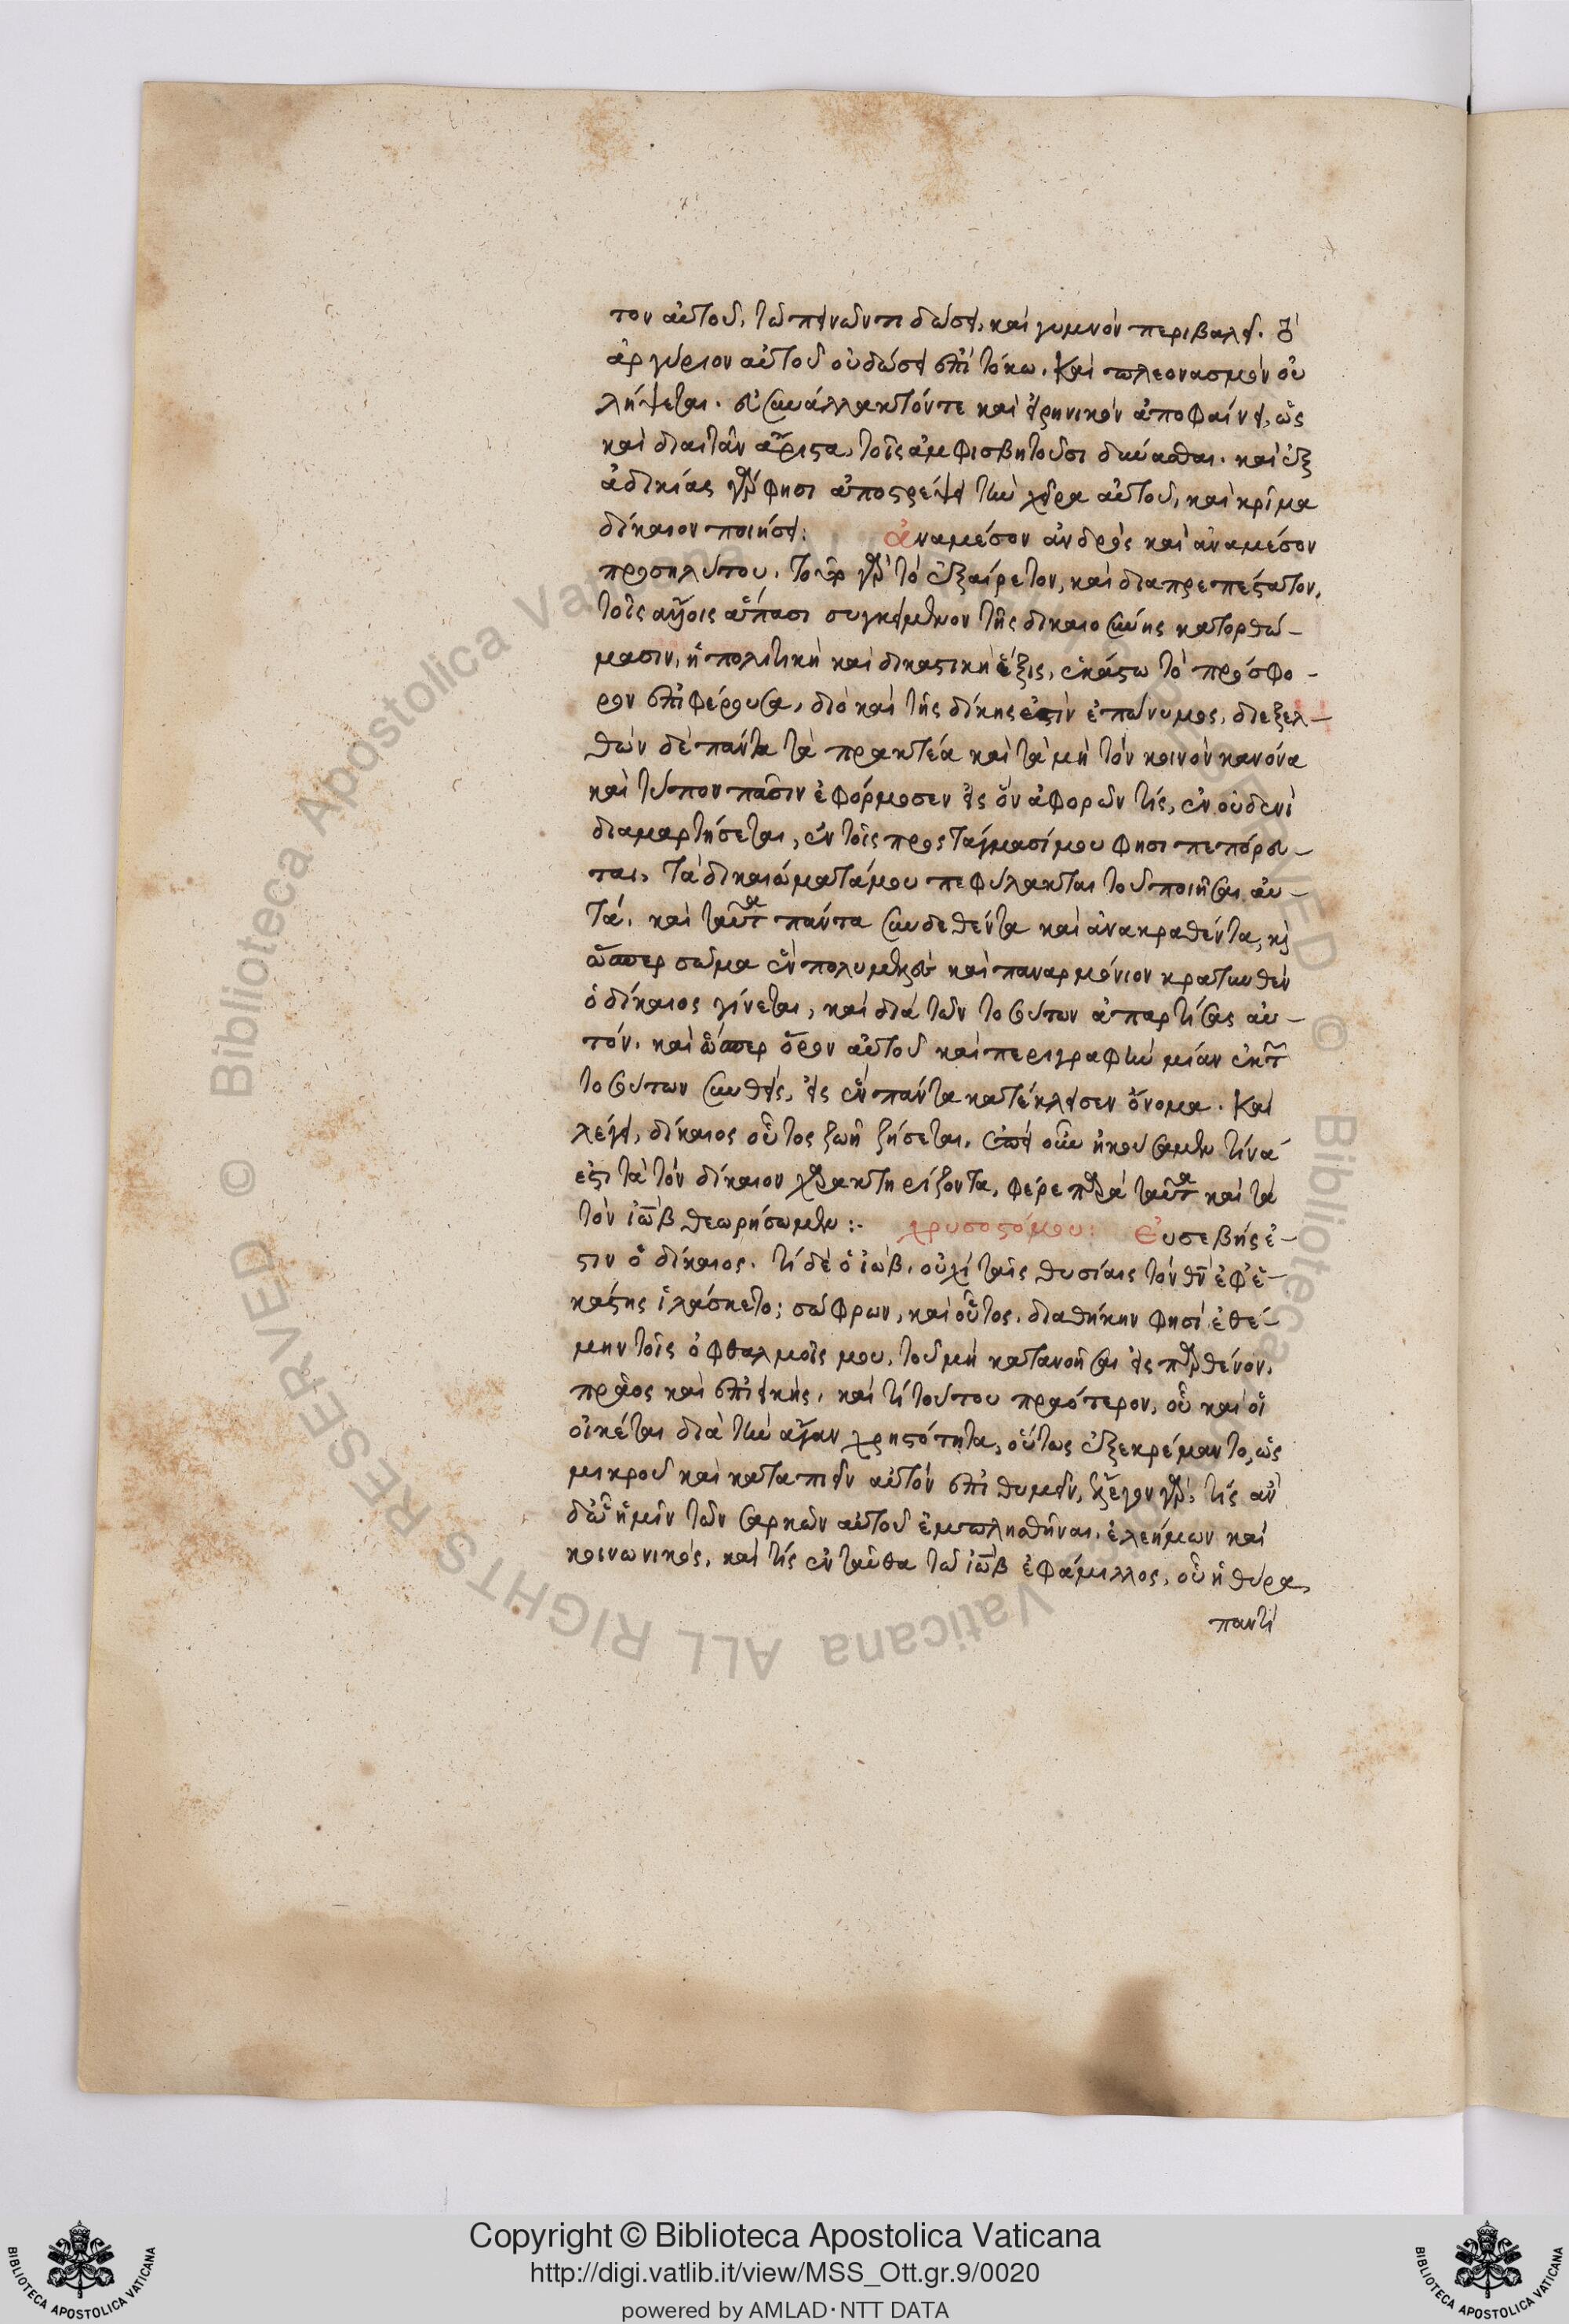 τον αὐτοῦ, τῶ πεινῶντι δώσει, καὶ γυμνὸν περιβαλεῖ. τὸ
ἀργύριον αὐτοῦ οὐ δώσει ἐπὶ τόκω. Καὶ πλεονασμὸν οὐ
λήψεται. συναλλακτόν τε καὶ εἰρηνικὸν ἀποφαίνει, ὡς
καὶ διαιτᾶν ἄριστα, τοῖς ἀμφισβητοῦσι δύνασθαι. καὶ ἐξ
ἀδικίας γάρ φησι ἀποστρέψει τὴν χεῖρα αὐτοῦ, καὶ κρίμα
δίκαιον ποιήσει: ἀναμέσον ἀνδρὸς καὶ ἀναμέσον
προσηλύτου. τοῦτο γὰρ τὸ ἐξαίρετον, καὶ διαπρεπέστατον,
τοῖς ἄλλοις ἅπασι συγκείμενον τῆς δικαιοσύνης κατορθώ-
μασιν, ἡ πολιτικὴ καὶ δικαστικὴ ἕξις, ἑκάστω τὸ πρόσφο-
ρον ἐπιφέρουσα, διὸ καὶ τῆς δίκης ἐστὶν ἐπώνυμος, διεξελ-
θὼν δὲ πάντα τὰ πρακτέα καὶ τὰ μὴ τὸν κοινὸν κανόνα
καὶ τύπον πᾶσιν ἐφόρμοσεν εἰς ὃν ἀφορῶν τίς, ἐν οὐδενὶ
διαμαρτήσεται, ἐν τοῖς προστάγμασί μου φησι πεπόρευ-
ται, τὰ δικαιώματά μου πεφύλακται τοῦ ποιῆσαι αὐ-
τά. καὶ ταῦτα πάντα συνδεθέντα καὶ ἀνακραθέντα, κ
ὥσπερ σῶμα ἓν πολυμερὲς καὶ παναρμόνιον κρατυνθὲν
ὁ δίκαιος γίνεται, καὶ διὰ τῶν τοσούτων ἀπαρτίσας αὐ-
τόν. καὶ ὥσπερ ὅρον αὐτοῦ καὶ περιγραφὴν μίαν ἐκ τ
τοσούτων συνθεὶς, εἰς ἓν πάντα κατέκλεισεν ὄνομα. Καὶ
λέγει, δίκαιος οὗτος ζωῆ ζήσεται. ἐπεὶ οὖν ἠκούσαμεν τίνά
ἐστι τὰ τὸν δίκαιον χαρακτηρίζοντα, φέρε παρὰ ταῦτα καὶ τὰ
τὸν ἰὼβ θεωρήσωμεν:. χρυσοστόμου: Εὐσεβής ἐ-
στιν ὁ δίκαιος. τί δὲ ὁ ἰώβ. οὐχὶ ταῖς θυσίαις τὸν θν ἐφ' ἑ-
κάστης ἱλάσκετο; σώφρων, καὶ οὗτος. διαθήκην φησὶ ἐθέ-
μην τοῖς ὀφθαλμοῖς μου, τοῦ μὴ κατανοῆσαι εἰς παρθένον.
πρᾶος καὶ ἐπιεικής. καὶ τί τούτου πραότερον, οὗ καὶ οἱ
οἰκέται διὰ τὴν ἄγαν χρηστότητα, οὕτως ἐξεκρέμαντο, ὡς
μικροῦ καὶ καταπιεῖν αὐτὸν ἐπιθυμεῖν, ἔλεγον γάρ, τίς ἂν
δώῃ ἡμῖν τῶν σαρκῶν αὐτοῦ ἐμπλησθῆναι. ἐλεήμων καὶ
κοινωνικός, καὶ τίς ἐνταῦθα τῶ ἰὼβ ἐφάμιλλος, οὗ ἡ θύρα,
παντὶ
Copyright © Biblioteca Apostolica Vaticana
http://digi.vatlib.it/view/MSS_Ott.gr.9/0020
powered by AMLAD·NTT DATA
BIBLIOTECA APOSTOLICA VATICANA
BIBLIOTECA APOSTOLICA VATICANA
© Biblioteca Apostolica Vaticana ALL RIGHTS RESERVED
© Biblioteca Apostolica Vaticana ALL RIGHTS RESERVED